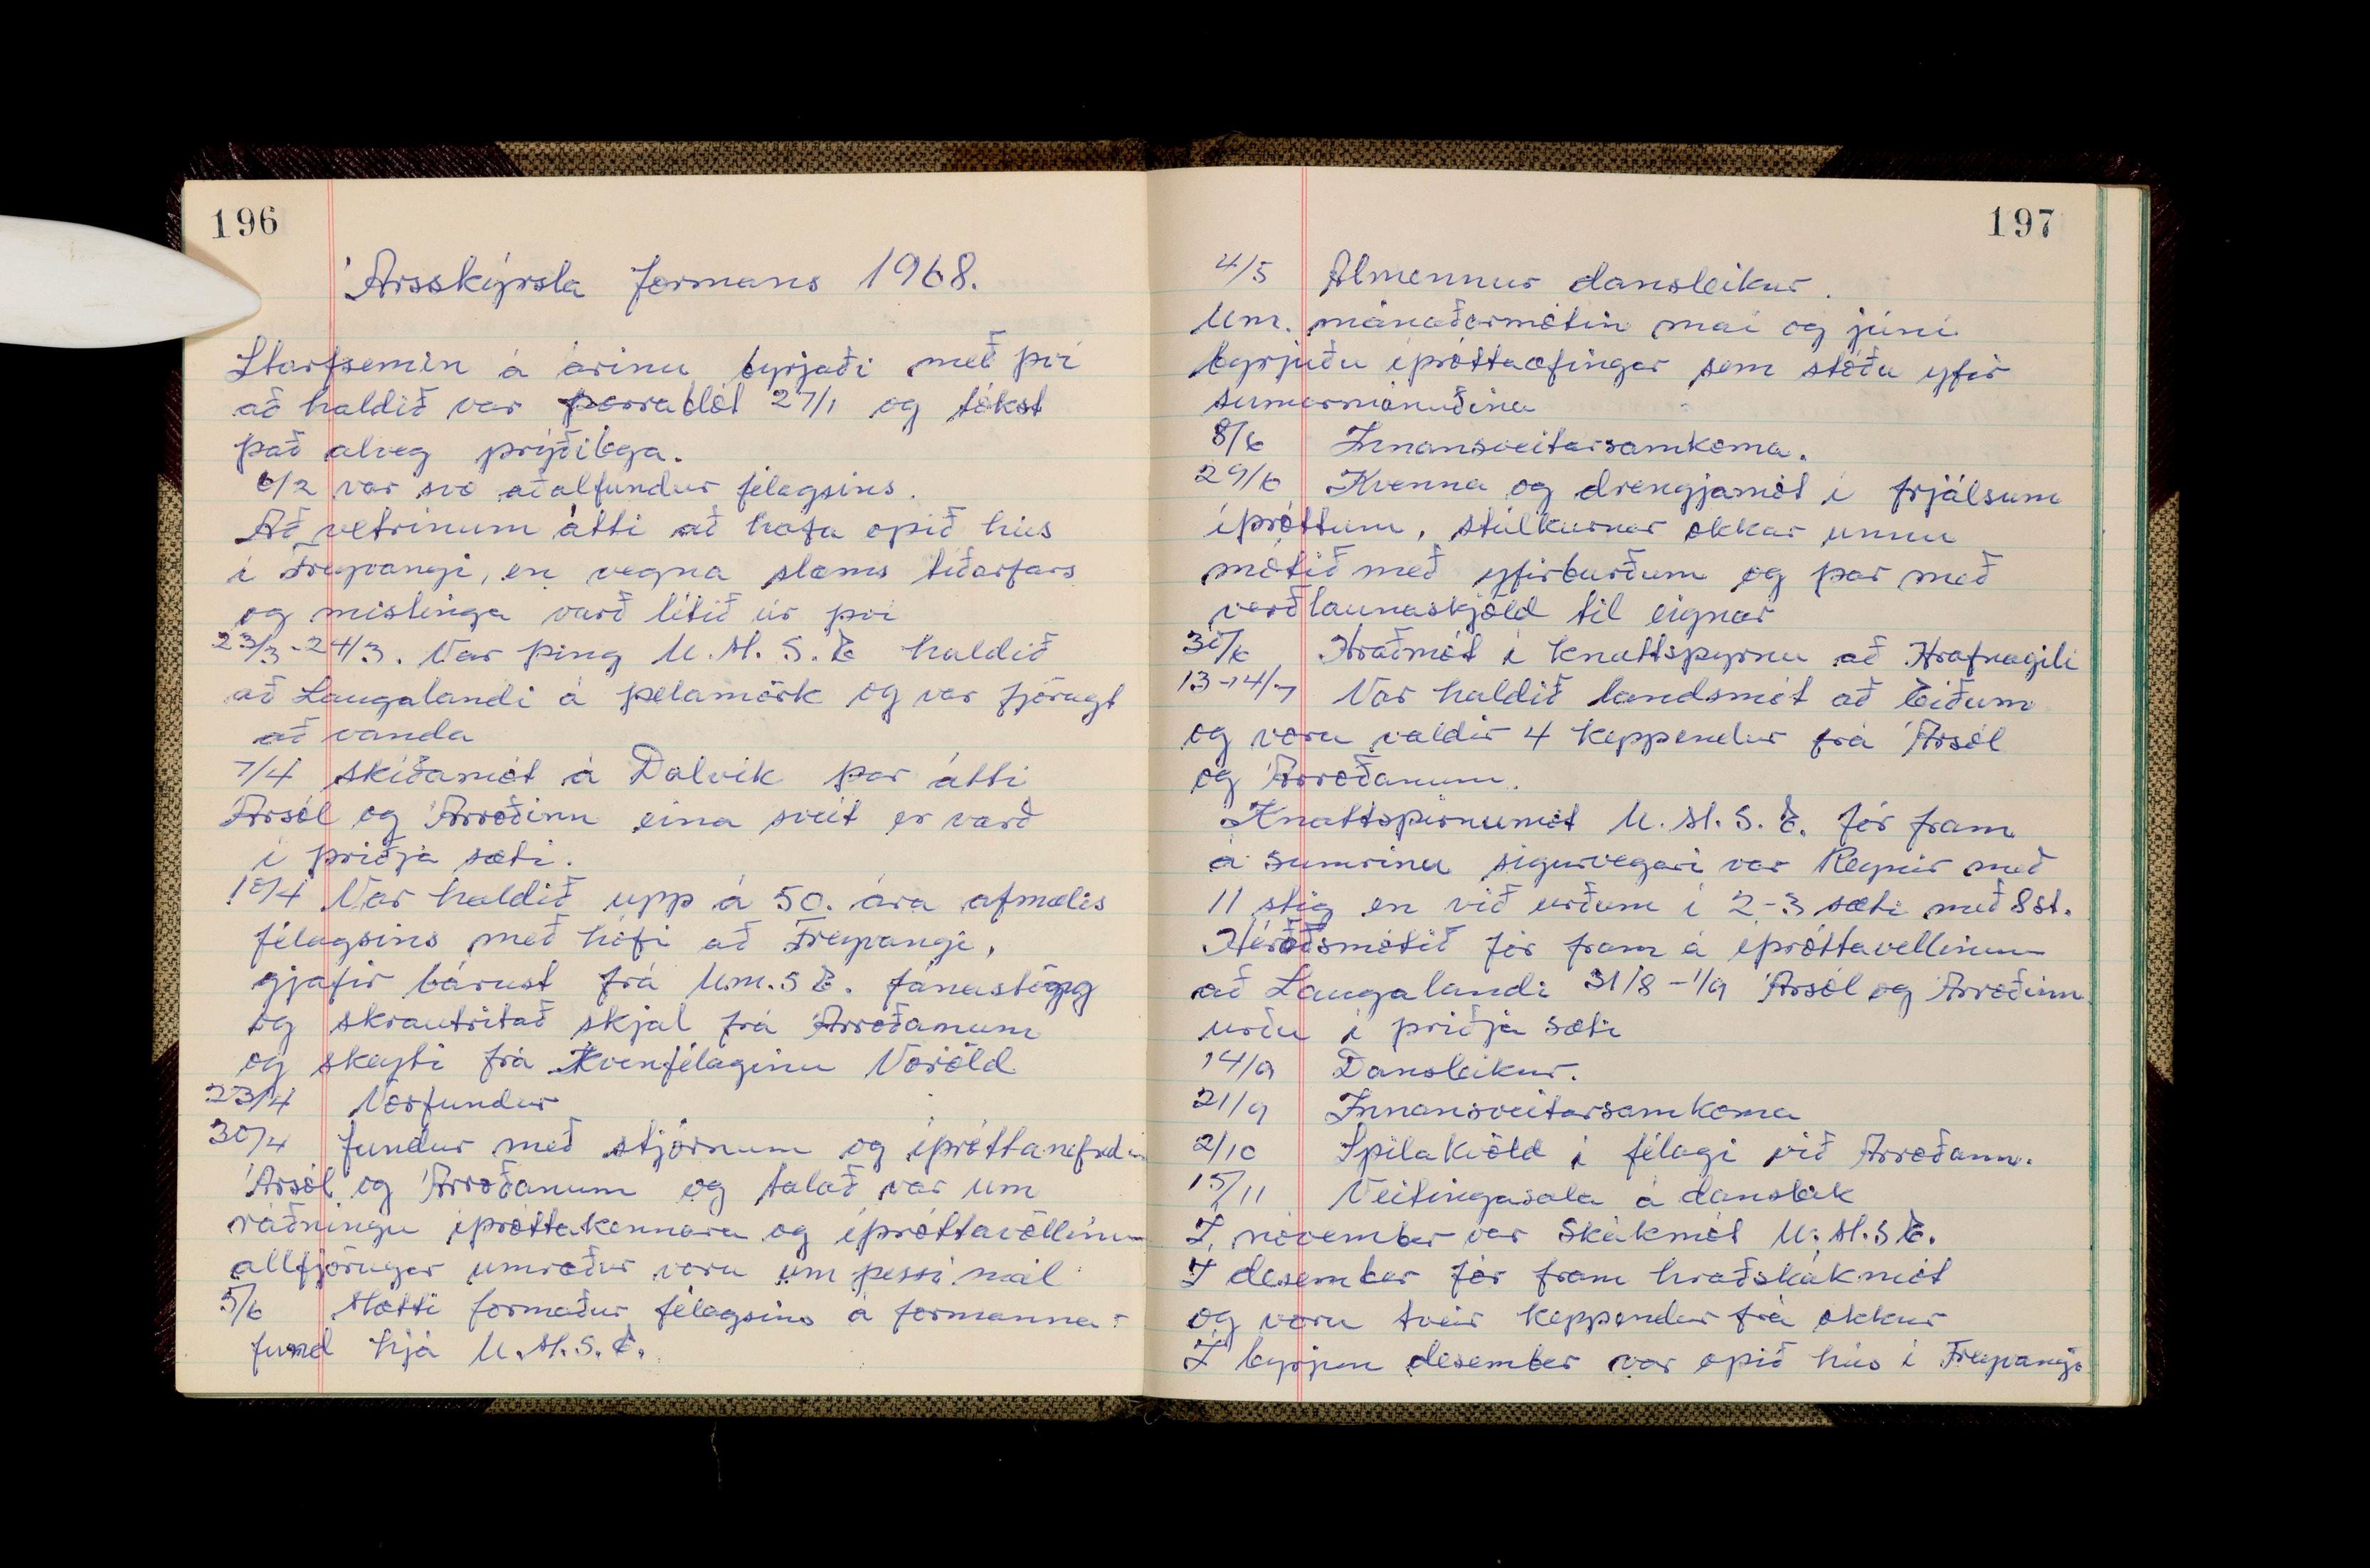 196
Ársskýrsla formans 1968.
Starfsemin á árinu byrjaði með því
að haldið var þorrablót 27/1 og tókst
það alveg prýðilega.
6/2 var svo aðalfundur félagsins.
Að vetrinum átti að hafa opið hús
í Freyvangi, en vegna slæms tíðarfars
og mislinga varð lítið úr því
23/3-24/3. Var þing U.M.S.E haldið
að Laugalandi á þelamörk og var fjörugt
að vanda
7/4 skíðamót á Dalvík þar átti
Ársól og Árroðinn eina sveit er varð
í þriðja sæti.
18/4 Var haldið upp á 50. ára afmælis
félagsins með hófi að Freyvangi,
gjafir bárust frá U.m.S E. fánastöng
og skrautritað skjal frá Árroðanum
og skeyti frá Kvenfélaginu Voröld
23/4 Vorfundur
30/4 fundur með stjórnum og íþróttanefnd
Ársól og Árroðanum og talað var um
ráðningu íþróttakennara og íþróttavöllinn
allfjörugar umræður voru um þessi mál
5/6 Mætti formaður félagsins á formanna-
fund hjá U.M.S.E.
197
4/5 Almennur dansleikur.
Um. mánaðarmótin maí og júní
byrjuðu íþróttaæfingar sem stóðu yfir
sumarmánuðina
8/6 Innansveitarsamkoma.
29/6 Kvenna og drengjamót í frjálsum
íþróttum, stúlkurnar okkar unnu
mótið með yfirburðum og þar með
verðlaunaskjöld til eignar
30/6 Hraðmót í knattspyrnu að Hrafnagili
13-14/7 Var haldið landsmót að Eiðum
og voru valdir 4 keppendur frá Ársól
og Árroðanum.
Knattspirnumót U.M.S.E. fór fram
á sumrinu sigurvegari var Reynir með
11 stig en við urðum í 2-3 sæti með 8 st.
Héraðsmótið fór fram á íþróttavellinum
að Laugalandi 31/8 - 1/9 Ársól og Árroðinn
urðu í þriðja sæti
14/9 Dansleikur.
21/9 Innansveitarsamkoma
2/10 Spilakvöld í félagi við Árroðann.
15/11 Veitingasala á dansleik
Í nóvember var Skákmót U.M.S E.
Í desember fór fram hraðskákmót
og voru tveir keppendur frá okkur
Í byrjun desember var opið hús í Freyvangi